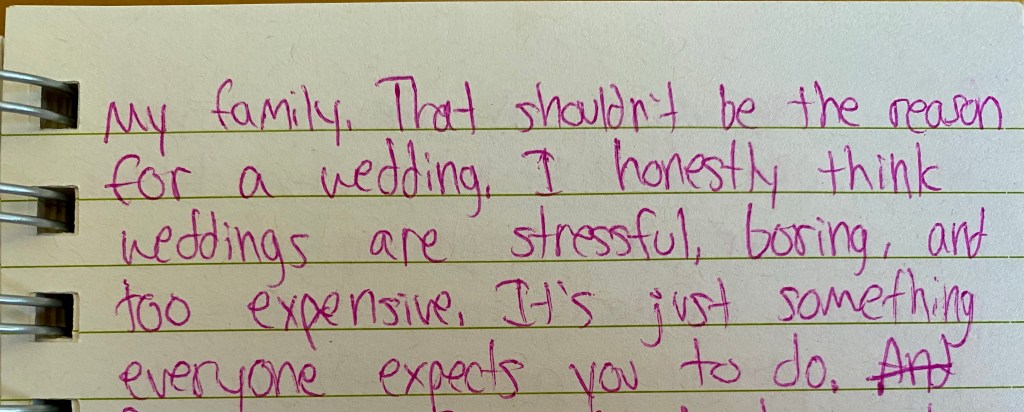 My family. That shouldn't be the reason
for a wedding. I honestly think
weddings are stressful, boring, and
too expensive. It's just something
everyone expects you to do. And